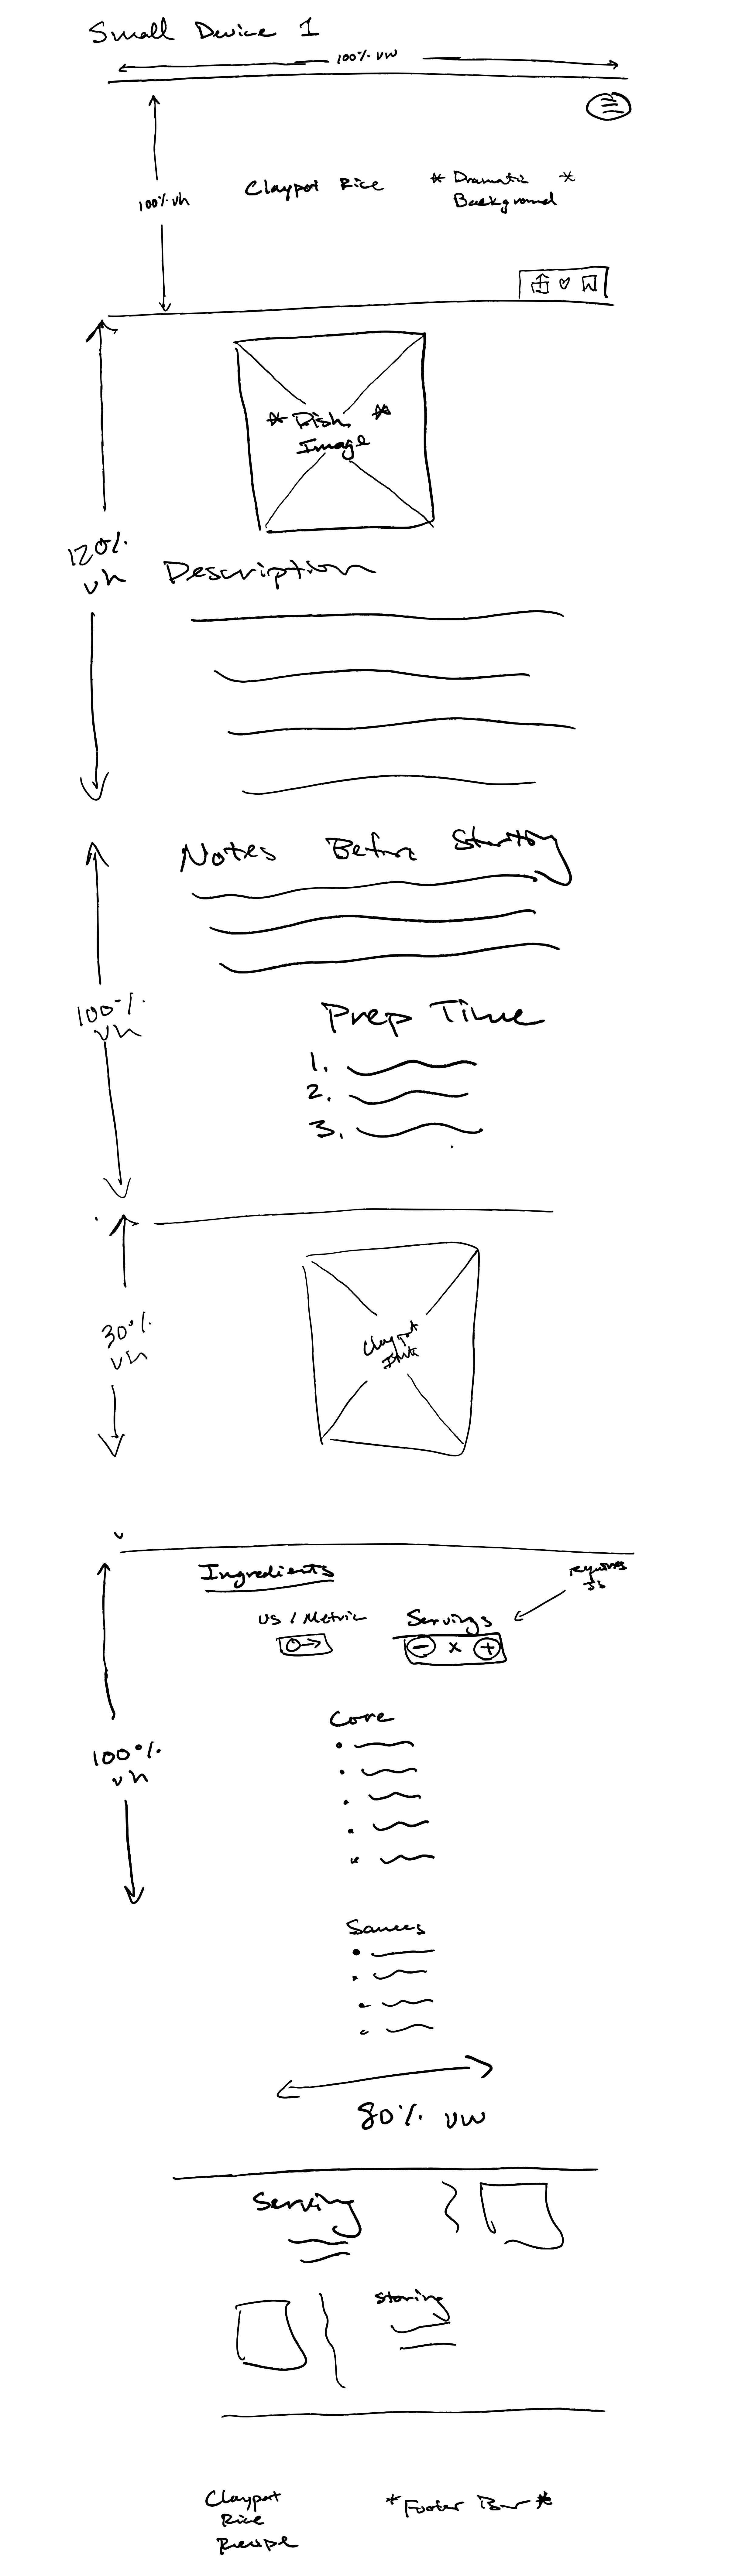 Small Device 1
100% vw
100% vh
Claypot Rice
* Dramatic *
Background
* Dish *
Image
120%
vh
Description
Notes Before Starting
100%
vh
Prep Time
1.
2.
3.
30%
vh
Claypot
Ingredients
requires
JS
US / Metric
Servings
- x +
Core
100%
vh
Sauces
80% vw
Serving
Storing
Claypot
Rice
Recipe
* Footer Bar *